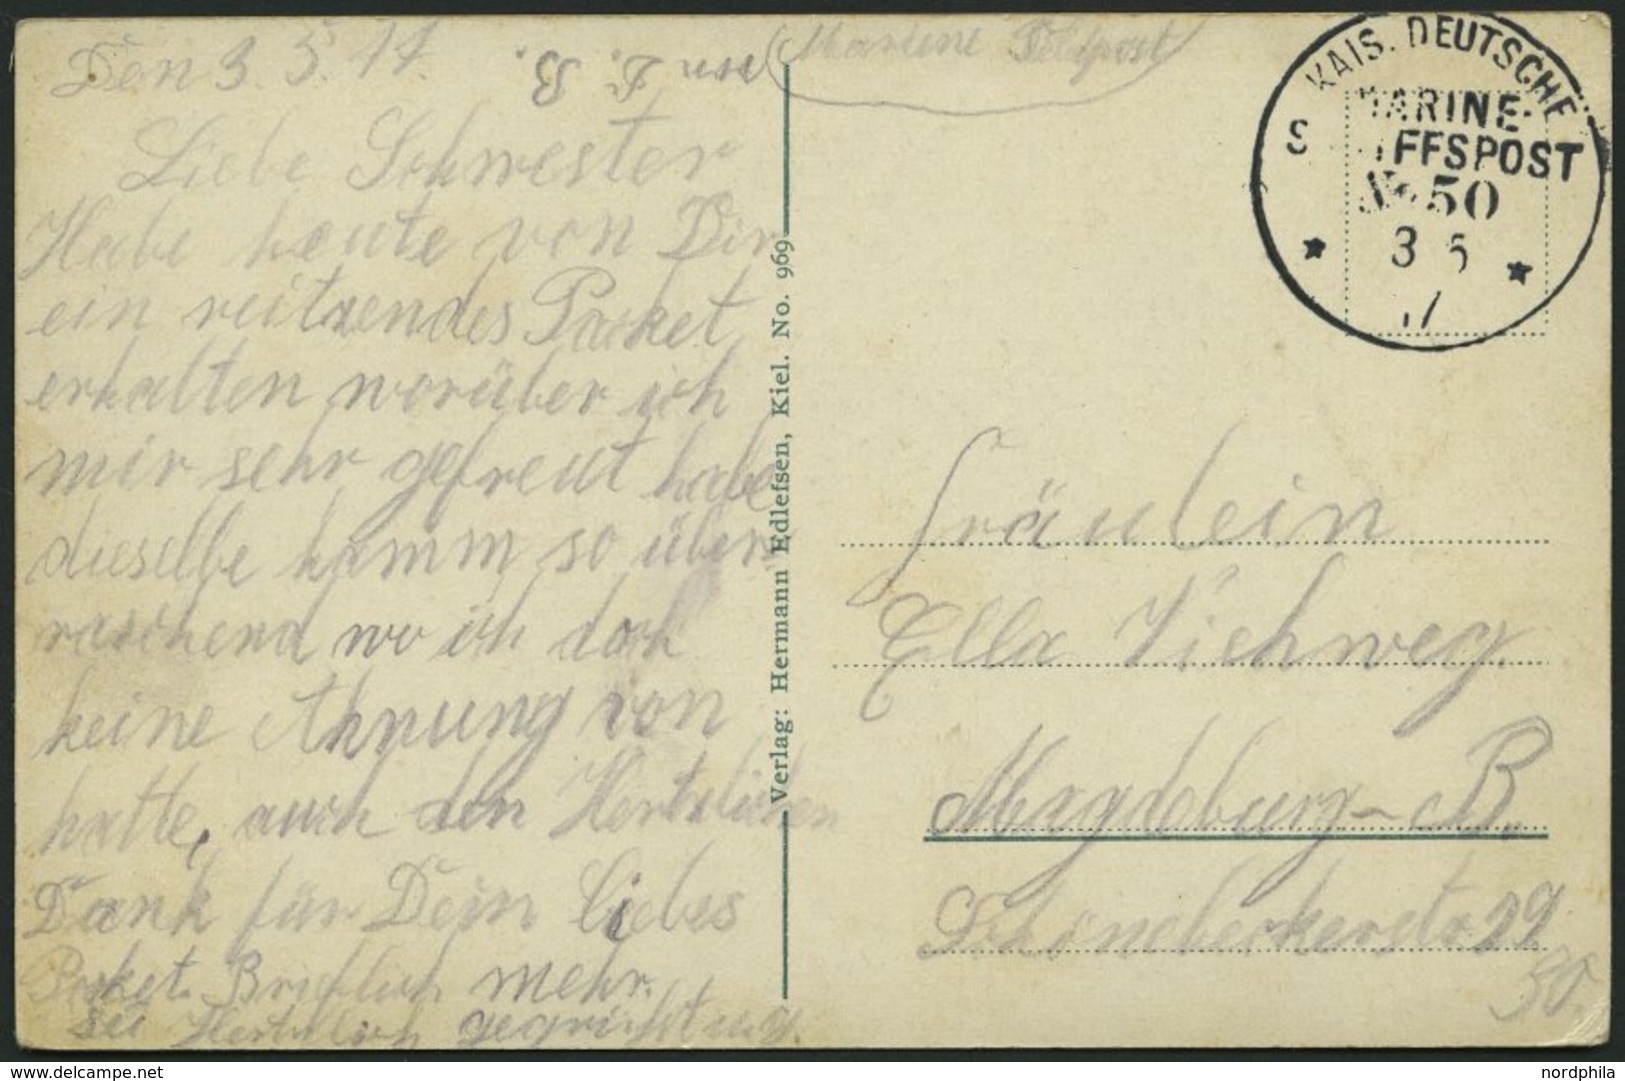 Den 3. 5. 17.
Mariene Feldpost
S. B.
KAIS. DEUTSCHE
MARINE-
SCHIFFSPOST
No 50
3 5
17
Liebe Schwester
Habe heute von Dir
ein reitzendes Packet
erhalten worüber ich
mir sehr gefreut habe
dieselbe kamm so über
raschend wo ich doch
keine Ahnung von
hatte, auch den Hertzlichen
Dank für Dein liebes
Packet. Brieflich mehr.
Hertzlich
Verlag: Hermann Edlefsen, Kiel. No. 969
Fräulein
Ella Viehweg
Magdeburg-B.
Schöneberkerstr 29
30.
nordphila